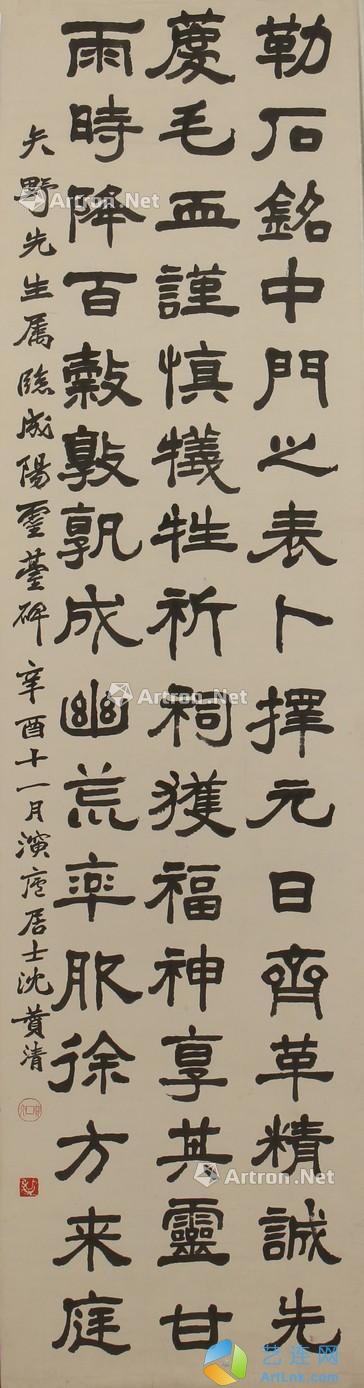 勒石銘中門之表卜擇元日齊革精誠先
薦毛血謹慎犧牲祈祠獲福神享其靈甘
雨時降百穀敦孰成幽荒率服徐方来庭
矢野先生属臨成陽靈臺碑辛酉十一月演庐居士沈賛清
Artron.Net
Artron.Net
Artron.Net
Artron.Net
艺连网
ArtLink.com